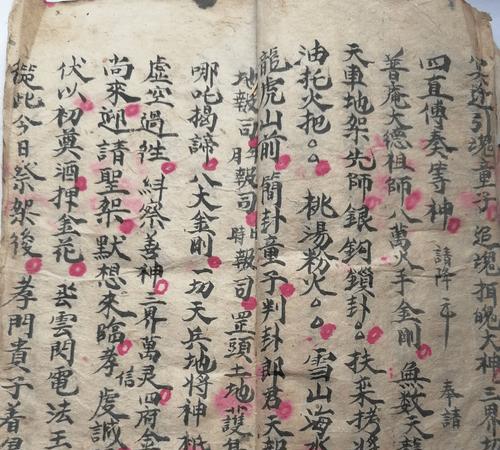 邪近引魂童子追魂招魄大神三界
四直傳奏等神 請降二牛 奉請
普庵大德祖師八萬火手金剛無数天龍
天車地架先師銀鈎鎖卦扶桒拷
油托火把 桃湯粉火 雪山海水
龍虎山前簡卦童子判卦郎君天報
地報司月報司日時報司罡頭土地護
哪吒揭諦八大金剛一切天兵地將神祇
虚空過徃糾察善神三界萬灵四府金
尚來迎請聖架默想來臨孝信虔誠
伏以初奠酒押金花登雲閃電法王
從此今日祭架後孝門貴子着